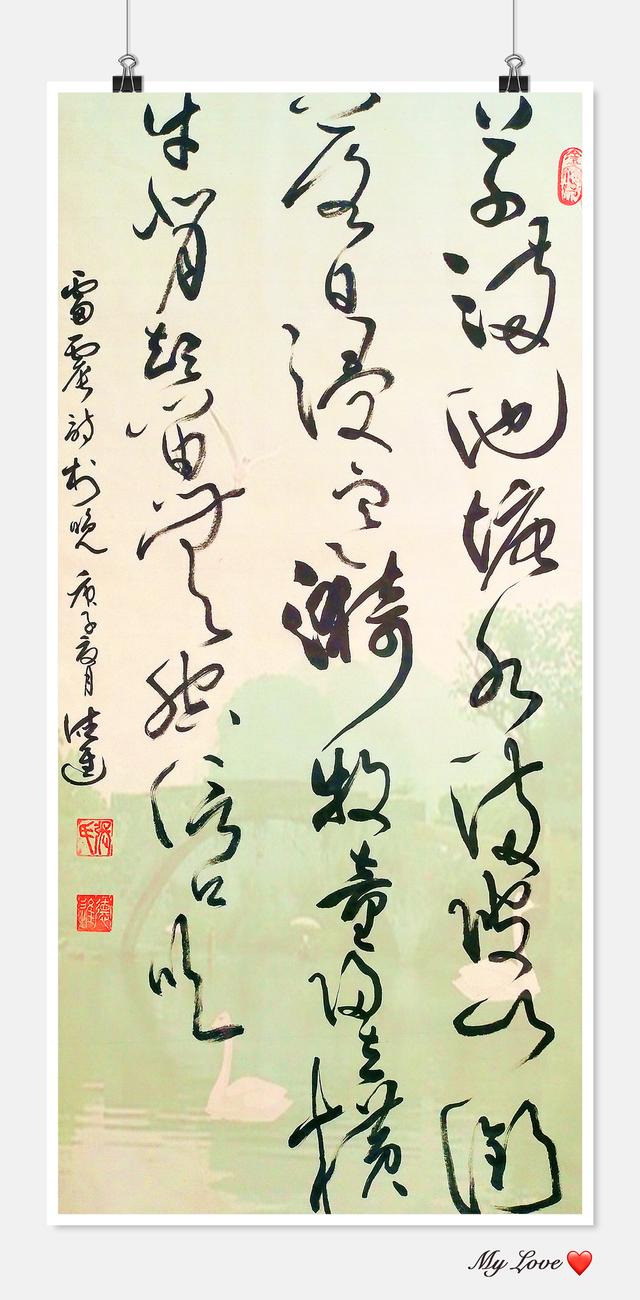 草滿池塘水滿陂山銜
落日浸寒漪牧童歸去橫
牛背短笛無腔信口吹
雷震詩村晚 庚子夏月
My Love